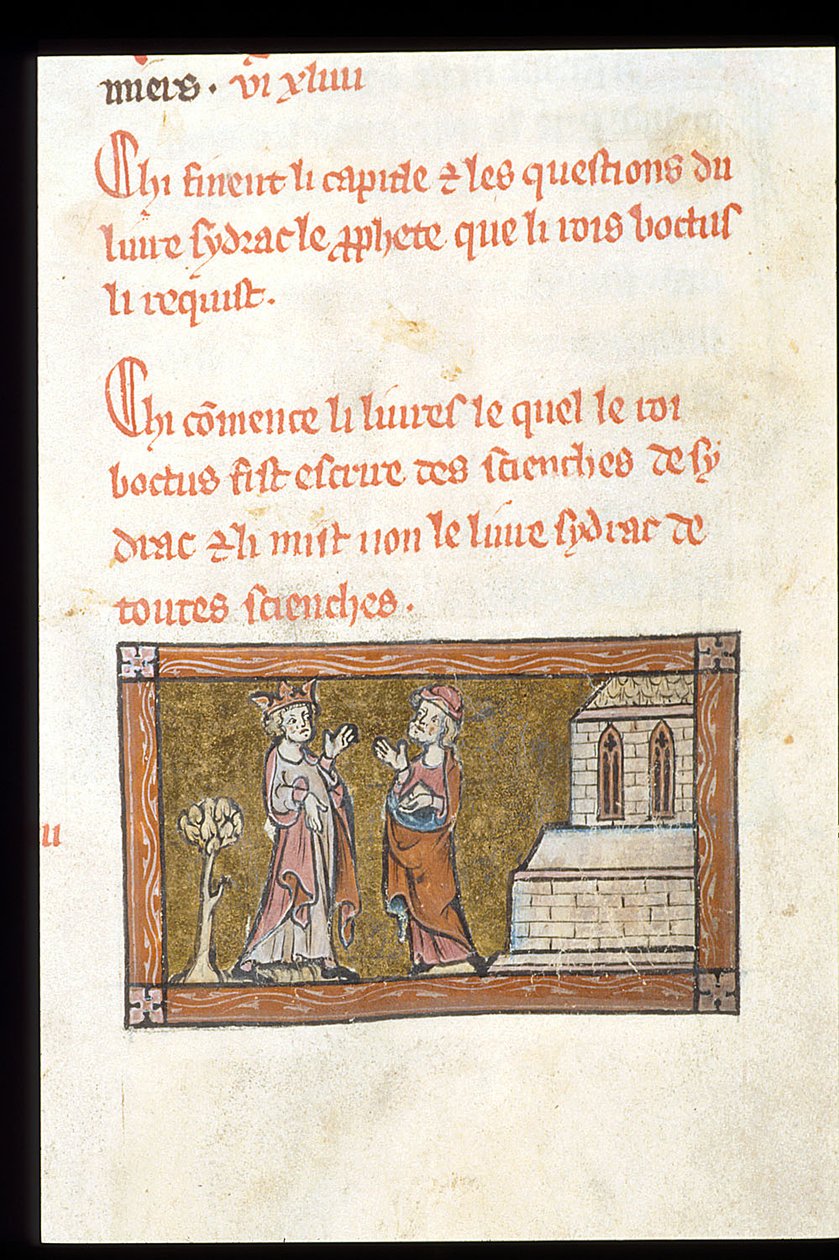 miers. vi xliiii
Chi finent li capitle ⁊ les questions du
liure sydrac le ꝓphete que li rois boctus
li requist.
Chi cōmence li liures le quel le roi
boctus fist escrire des scienches de sy
drac ⁊ li mist non le liure sydrac de
toutes scienches.